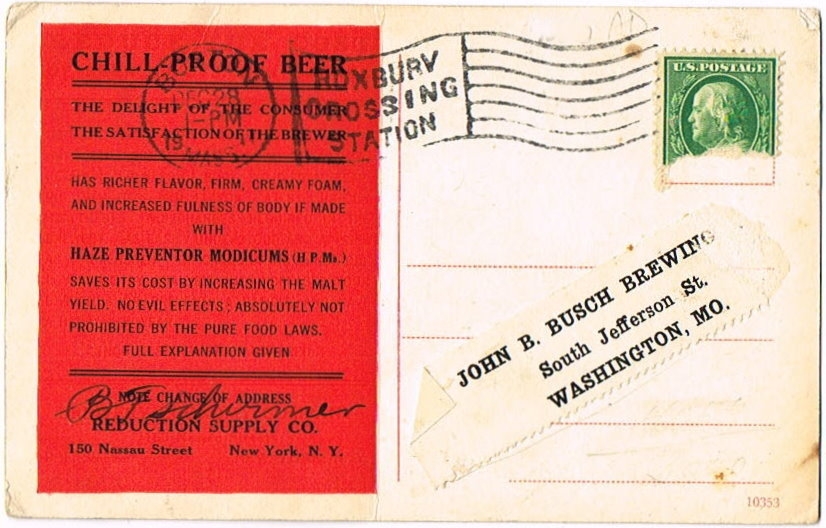 CHILL-PROOF BEER
THE DELIGHT OF THE CONSUMER
THE SATISFACTION OF THE BREWER
HAS RICHER FLAVOR, FIRM, CREAMY FOAM,
AND INCREASED FULNESS OF BODY IF MADE
WITH
HAZE PREVENTOR MODICUMS (H P.Ms.)
SAVES ITS COST BY INCREASING THE MALT
YIELD. NO EVIL EFFECTS; ABSOLUTELY NOT
PROHIBITED BY THE PURE FOOD LAWS.
FULL EXPLANATION GIVEN
NOTE CHANGE OF ADDRESS
REDUCTION SUPPLY CO.
150 Nassau Street New York, N. Y.
BOSTON
DEC 28
1-PM
MASS.
ROXBURY
CROSSING
STATION
U.S. POSTAGE
JOHN B. BUSCH BREWING
South Jefferson St.
WASHINGTON, MO.
10353